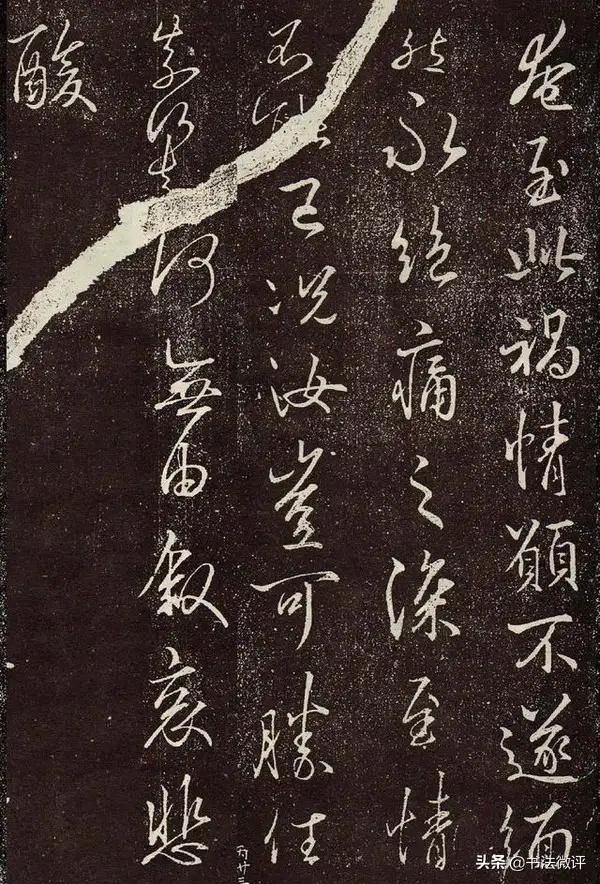 奄至此禍情願不遂緬
然永絕痛之深至情
不能已況汝豈可勝任
奈何奈何無由叙哀悲
酸
丙廿三
头条 @书法微评